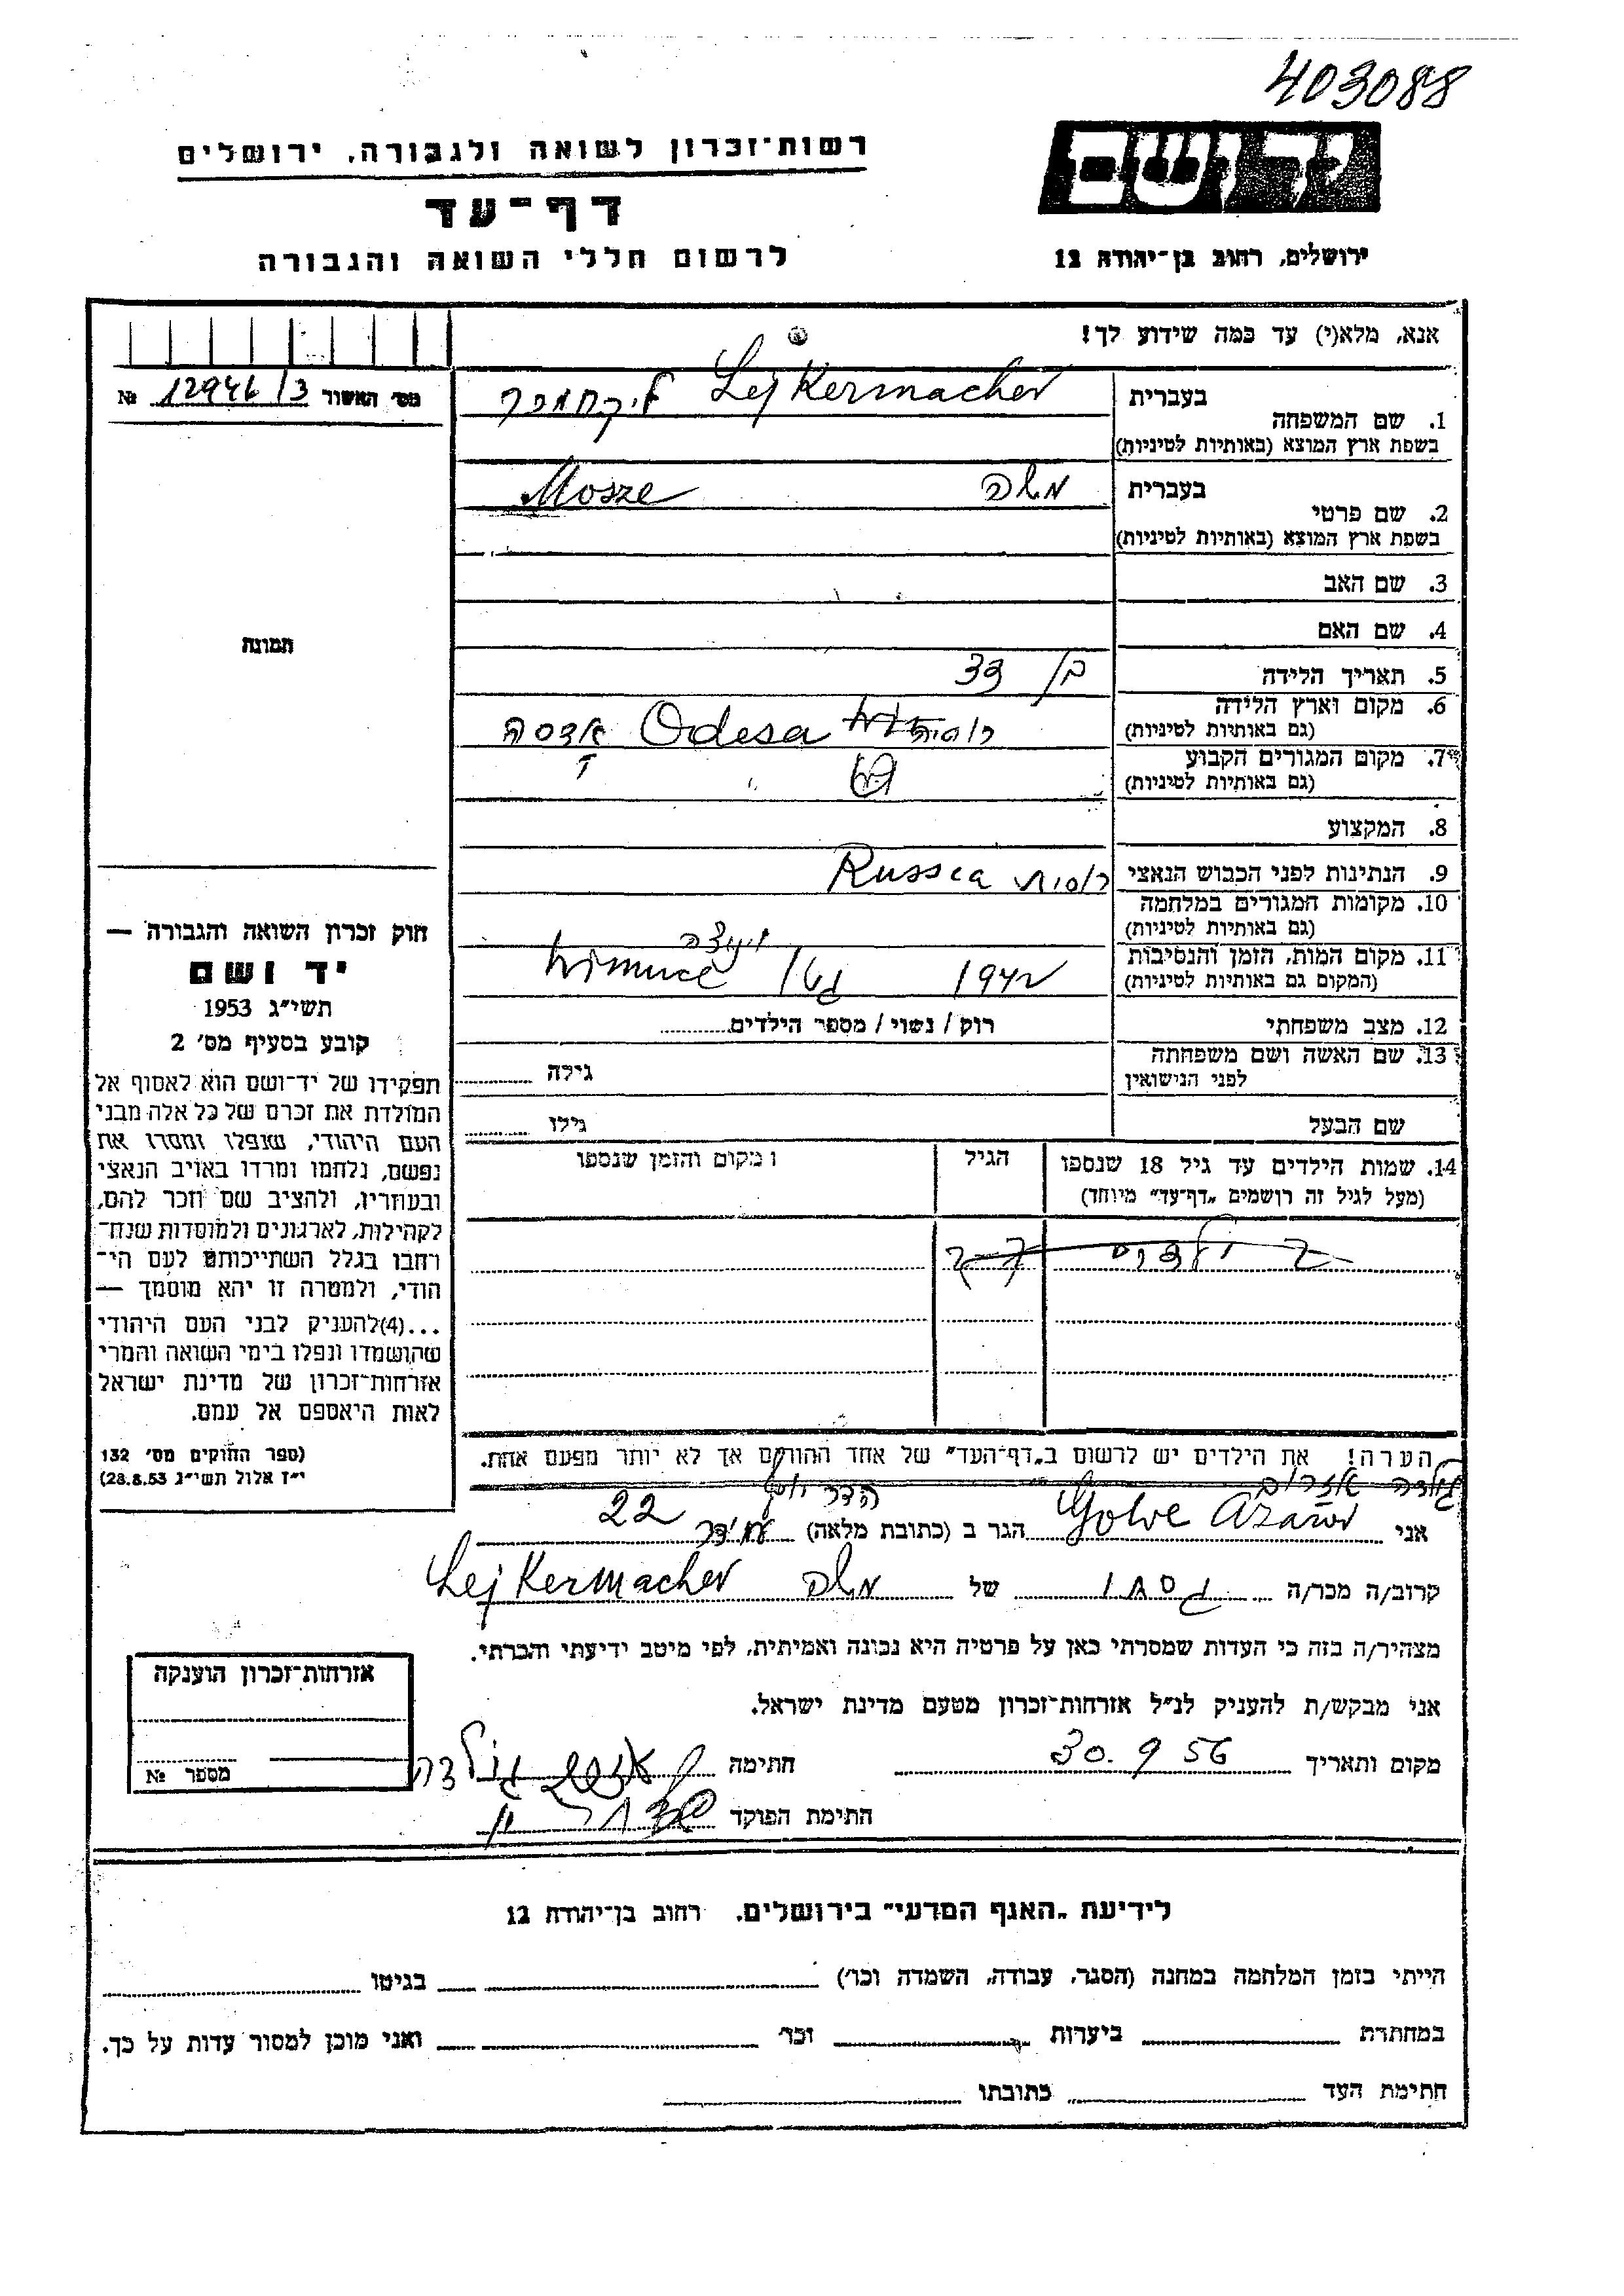 403088
יד ושם
ירושלים, רחוב בן־יהודה 12
רשות־זכרון לשואה ולגבורה, ירושלים
דף־עד
לרשום חללי השואה והגבורה
אנא, מלא(י) עד כמה שידוע לך!
מס' האשור 12946/3 №
תמונה
1. שם המשפחה
בעברית Lejkermacher
בשפת ארץ המוצא (באותיות לטיניות)
2. שם פרטי
בעברית משה Mosze
בשפת ארץ המוצא (באותיות לטיניות)
3. שם האב
4. שם האם
5. תאריך הלידה בן 33
6. מקום וארץ הלידה
(גם באותיות לטיניות) רוסיה Odesa אודסה
7. מקום המגורים הקבוע
(גם באותיות לטיניות)
8. המקצוע
9. הנתינות לפני הכבוש הנאצי רוסית Russia
10. מקומות המגורים במלחמה
(גם באותיות לטיניות)
11. מקום המות, הזמן והנסיבות
(המקום גם באותיות לטיניות) 1942 גטו
12. מצב משפחתי רוק / נשוי / מספר הילדים
13. שם האשה ושם משפחתה
לפני הנישואין גילה
שם הבעל גילו
14. שמות הילדים עד גיל 18 שנספו
(מעל לגיל זה רושמים „דף־עד" מיוחד)
הגיל
ו מקום והזמן שנספו
2 ילדים
הערה! את הילדים יש לרשום ב„דף־העד" של אחד ההורים אך לא יותר מפעם אחת.
חוק זכרון השואה והגבורה —
יד ושם
תשי״ג 1953
קובע בסעיף מס' 2
תפקידו של יד־ושם הוא לאסוף אל
המולדת את זכרם של כל אלה מבני
העם היהודי, שנפלו ומסרו את
נפשם, נלחמו ומרדו באויב הנאצי
ובעוזריו, ולהציב שם וזכר להם,
לקהילות, לארגונים ולמוסדות שנח־
רחבו בגלל השתייכותם לעם הי־
הודי, ולמטרה זו יהא מוסמך —
...(4)להעניק לבני העם היהודי
שהושמדו ונפלו בימי השואה והמרי
אזרחות־זכרון של מדינת ישראל
לאות היאספם אל עמם.
(ספר החוקים מס' 132
י״ז אלול תשי״ג 28.8.53)
גולדה אזרוב
אני Golde Azarow הגר ב (כתובת מלאה) הדר יוסף 22
קרוב/ה מכר/ה גיסתו של משה Lejkermacher
מצהיר/ה בזה כי העדות שמסרתי כאן על פרטיה היא נכונה ואמיתית, לפי מיטב ידיעתי והכרתי.
אני מבקש/ת להעניק לנ״ל אזרחות־זכרון מטעם מדינת ישראל.
מקום ותאריך 30.9 56 חתימה גולדה
חתימת הפוקד
אזרחות־זכרון הוענקה
מספר №
לידיעת „האגף המדעי" בירושלים, רחוב בן־יהודה 12
הייתי בזמן המלחמה במחנה (הסגר, עבודה, השמדה וכו') בגיטו
במחתרת ביערות וכו' ואני מוכן למסור עדות על כך.
חתימת העד כתובתו